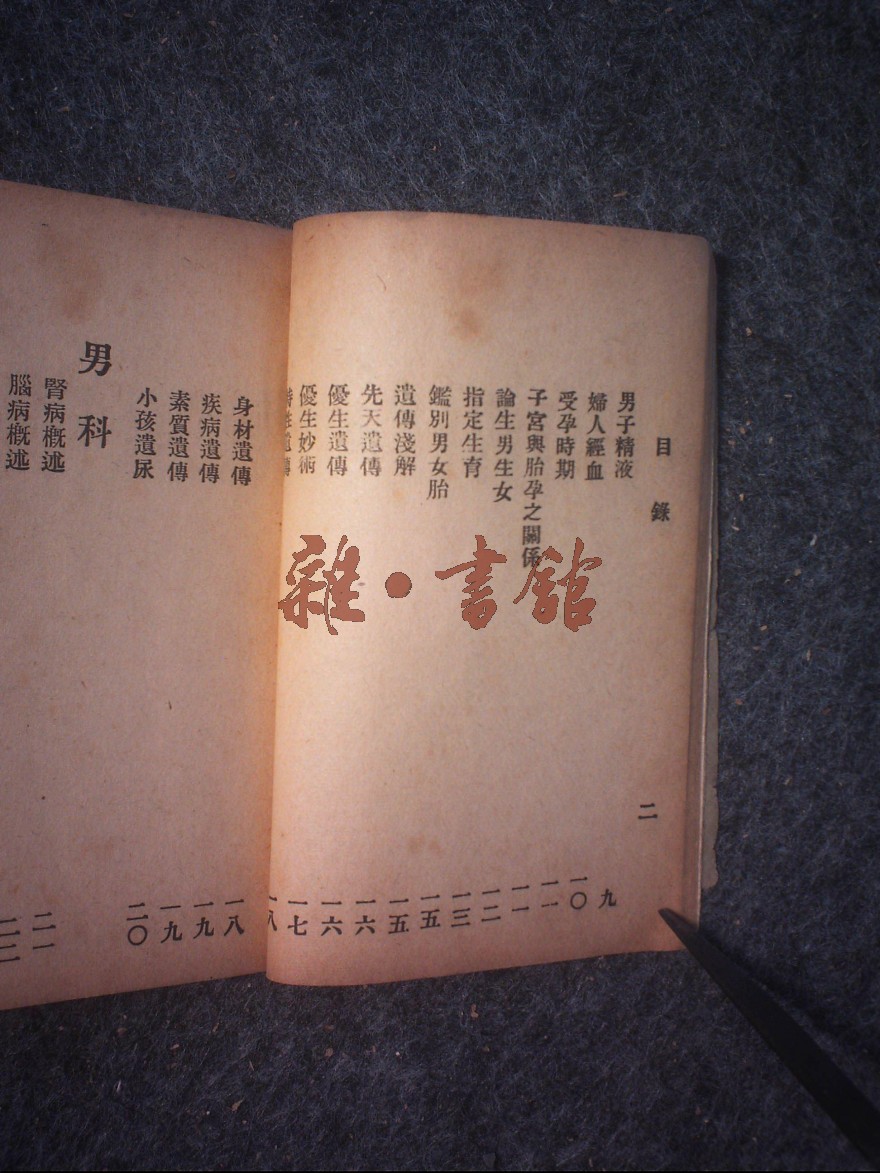 目錄 二
男子精液 九
婦人經血 一〇
受孕時期 一一
子宮與胎孕之關係 一一
論生男生女 一二
指定生育 一三
鑑別男女胎 一五
遺傳淺解 一五
先天遺傳 一六
優生遺傳 一六
優生妙術 一七
性遺傳 一八
身材遺傳 一八
疾病遺傳 一九
素質遺傳 一九
小孩遺尿 二〇
男科
腎病槪述 二一
腦病槪述
雜·書館